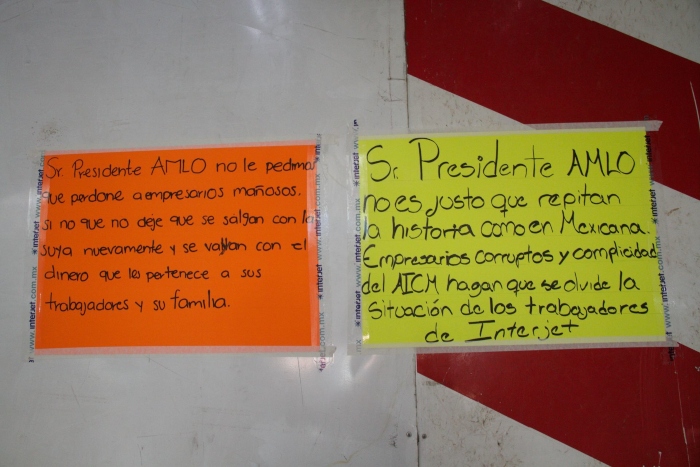 Sr. Presidente AMLO no le pedimos
que perdone a empresarios mañosos.
si no que no deje que se salgan con la
suya nuevamente y se vallan con el
dinero que les pertenece a sus
trabajadores y su familia.
Sr. Presidente AMLO
no es justo que repitan
la historia como en Mexicana.
Empresarios corruptos y complicidad
del AICM hagan que se olvide la
Situación de los trabajadores
de Interjet
www.interjet.com.mx
interjet
www.interjet.com.mx
interjet
www.interjet.com.mx
interjet
www.interjet.com.mx